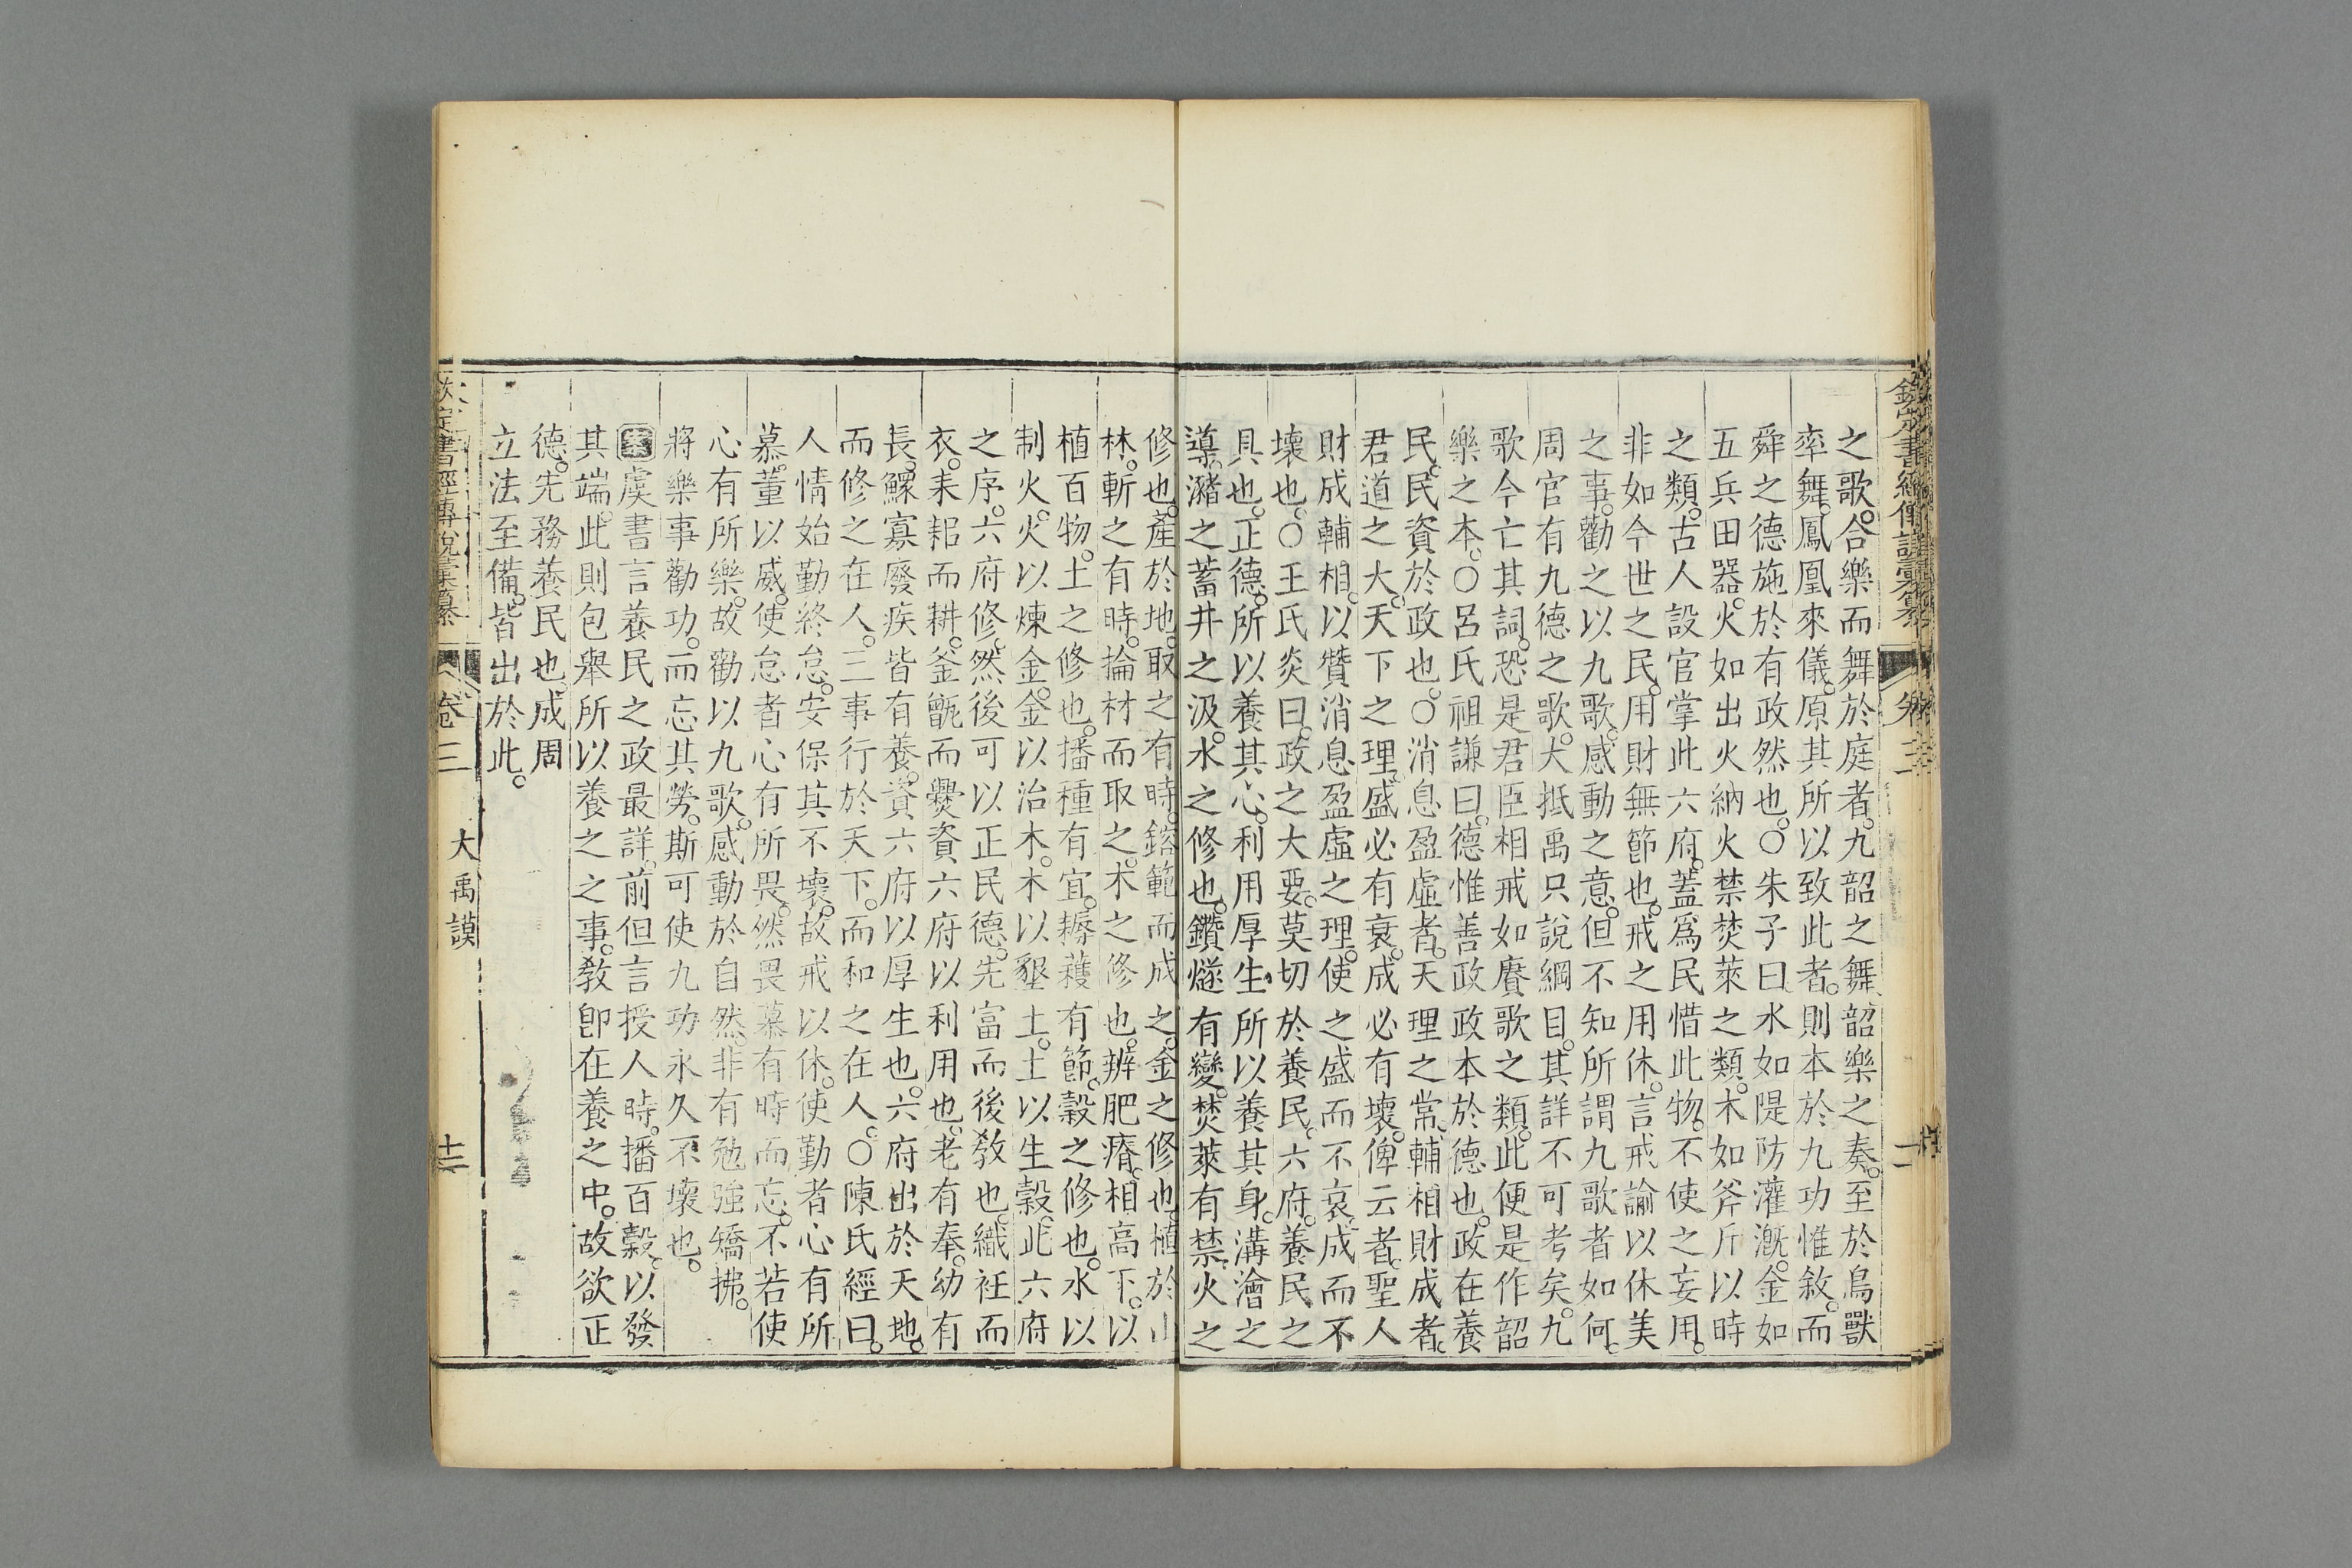 之歌。合樂而舞於庭者。九韶之舞。韶樂之奏。至於鳥獸
率舞。鳳凰來儀。原其所以致此者。則本於九功惟敘。而
舜之德施於有政然也。○朱子曰。水如隄防灌漑。金如
五兵田器。火如出火納火禁焚萊之類。木如斧斤以時
之類。古人設官掌此六府。蓋爲民惜此物。不使之妄用。
非如今世之民。用財無節也。戒之用休。言戒諭以休美
之事。勸之以九歌。感動之意。但不知所謂九歌者如何。
周官有九德之歌。大抵禹只說綱目。其詳不可考矣。九
歌今亡其詞。恐是君臣相戒如賡歌之類。此便是作韶
樂之本。○呂氏祖謙曰。德惟善政政本於德也。政在養
民。民資於政也。○消息盈虛者。天理之常。輔相財成者。
君道之大。天下之理。盛必有衰。成必有壞。俾云者。聖人
財成輔相。以贊消息盈虛之理。使之盛而不衰。成而不
壞也。○王氏炎曰。政之大要。莫切於養民。六府。養民之
具也。正德。所以養其心。利用厚生。所以養其身。溝澮之
導。瀦之蓄井之汲。水之修也。鑽燧有變。焚萊有禁。火之
修也。產於地。取之有時。鎔範而成之。金之修也。植於山
林。斬之有時。掄材而取之。木之修也。辨肥瘠。相高下。以
植百物。土之修也。播種有宜。耨穫有節。穀之修也。水以
制火。火以煉金。金以治木。木以墾土。土以生穀。此六府
之序。六府修。然後可以正民德。先富而後敎也。織衽而
衣。耒耜而耕。釜甑而爨資六府以利用也。老有奉。幼有
長。鰥寡廢疾皆有養。資六府以厚生也。六府出於天地。
而修之在人。三事行於天下。而和之在人。○陳氏經曰。
人情始勤終怠。安保其不壞。故戒以休。使勤者心有所
慕。董以威。使怠者心有所畏。然畏慕有時而忘。不若使
心有所樂。故勸以九歌。感動於自然。非有勉強矯拂。
將樂事勸功。而忘其勞。斯可使九功永久不壞也。
案虞書言養民之政最詳。前但言授人時。播百穀。以發
其端。此則包舉所以養之之事。敎卽在養之中。故欲正
德。先務養民也。成周
立法至備。皆出於此。
欽定書經傳說彙纂 卷三 大禹謨 十二